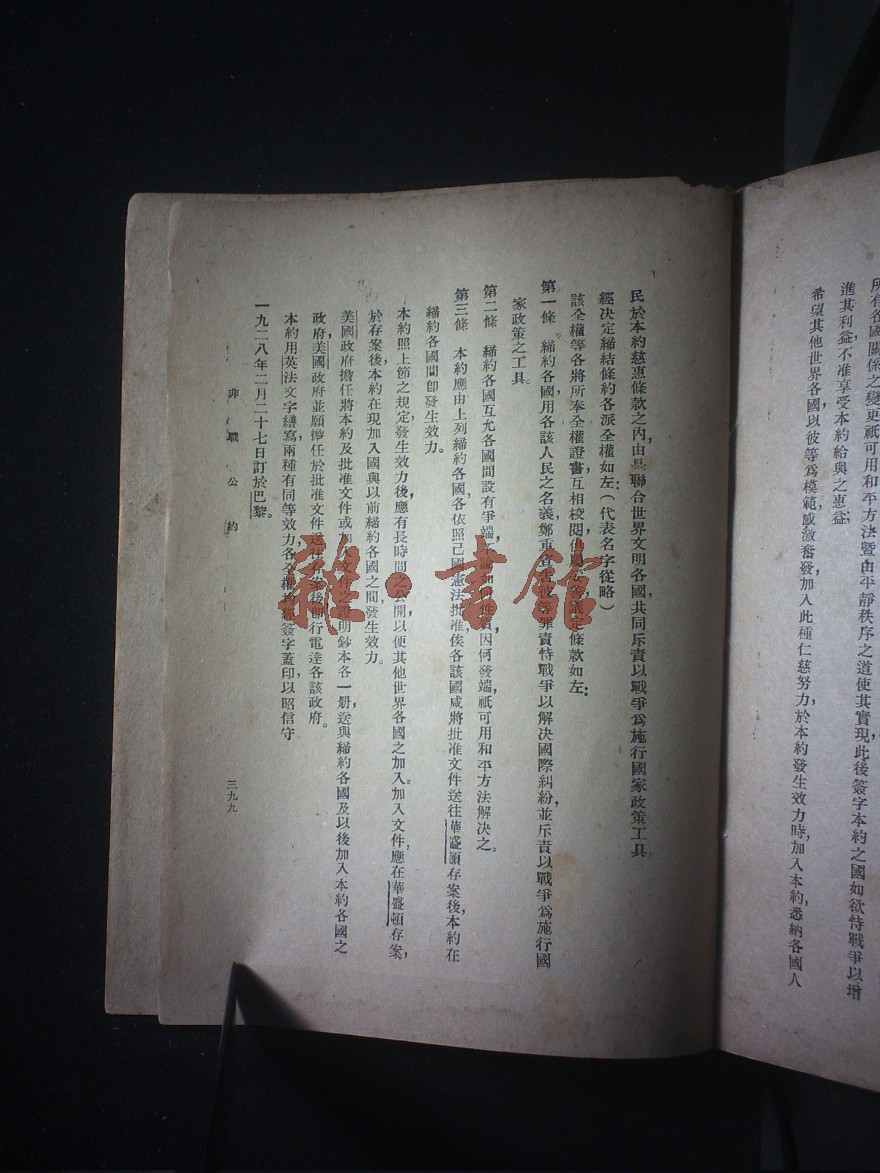 所有各國關係之變更祇可用和平方法暨由平靜秩序之道使其實現此後簽字本約之國如欲恃戰爭以增
進其利益不准享受本約給與之惠益
希望其他世界各國以彼等爲模範感激奮發加入此種仁慈努力於本約發生效力時加入本約悉納各國人
民於本約慈惠條款之內由是聯合世界文明各國共同斥責以戰爭爲施行國家政策工具
經決定締結條約各派全權如左：（代表名字從略）
該全權等各將所奉全權證書互相校閱 條款如左：
第一條 締約各國用各該人民之名義鄭重 彼等罪責恃戰爭以解決國際糾紛並斥責以戰爭爲施行國
家政策之工具。
第二條 締約各國互允各國間設有爭端 因何發端祇可用和平方法解決之。
第三條 本約應由上列締約各國各依照己國憲法批准俟各該國咸將批准文件送往華盛頓存案後本約在
締約各國間即發生效力。
本約照上節之規定發生效力後應有長時間之公開以便其他世界各國之加入。加入文件應在華盛頓存案，
於存案後本約在現加入國與以前締約各國之間發生效力。
美國政府擔任將本約及批准文件或加入文件之證明鈔本各一册送與締約各國及以後加入本約各國之
政府美國政府並願擔任於批准文件送往存案後即行電達各該政府。
本約用英法文字繕寫兩種有同等效力各全權均經簽字蓋印以昭信守
一九二八年二月二十七日訂於巴黎。
非戰公約
三九九
雜·書館